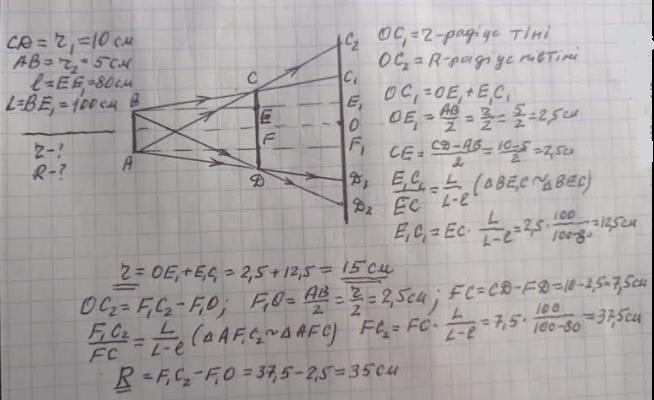 CD = r₁ = 10 см
AB = r₂ = 5 см
l = EE₁ = 80 см
L = BE₁ = 100 см
r - ?
R - ?
B
A
C
E
F
D
C₂
C₁
E₁
O
F₁
D₁
D₂
OC₁ = r - радіус тіні
OC₂ = R - радіус півтіні
OC₁ = OE₁ + E₁C₁
OE₁ = AB/2 = r/2 = 5/2 = 2,5 см
CE = (CD - AB)/2 = (10 - 5)/2 = 2,5 см
E₁C₁/EC = L/(L - l) (△BE₁C ~ △BEC)
E₁C₁ = EC · L/(L - l) = 2,5 · 100/(100 - 80) = 12,5 см
r = OE₁ + E₁C₁ = 2,5 + 12,5 = 15 см
OC₂ = F₁C₂ - F₁O; F₁O = AB/2 = r/2 = 2,5 см; FC = CD - FD = 10 - 2,5 = 7,5 см
F₁C₂/FC = L/(L - l) (△AF₁C₂ ~ △AFC) FC₂ = FC · L/(L - l) = 7,5 · 100/(100 - 80) = 37,5 см
R = F₁C₂ - F₁O = 37,5 - 2,5 = 35 см